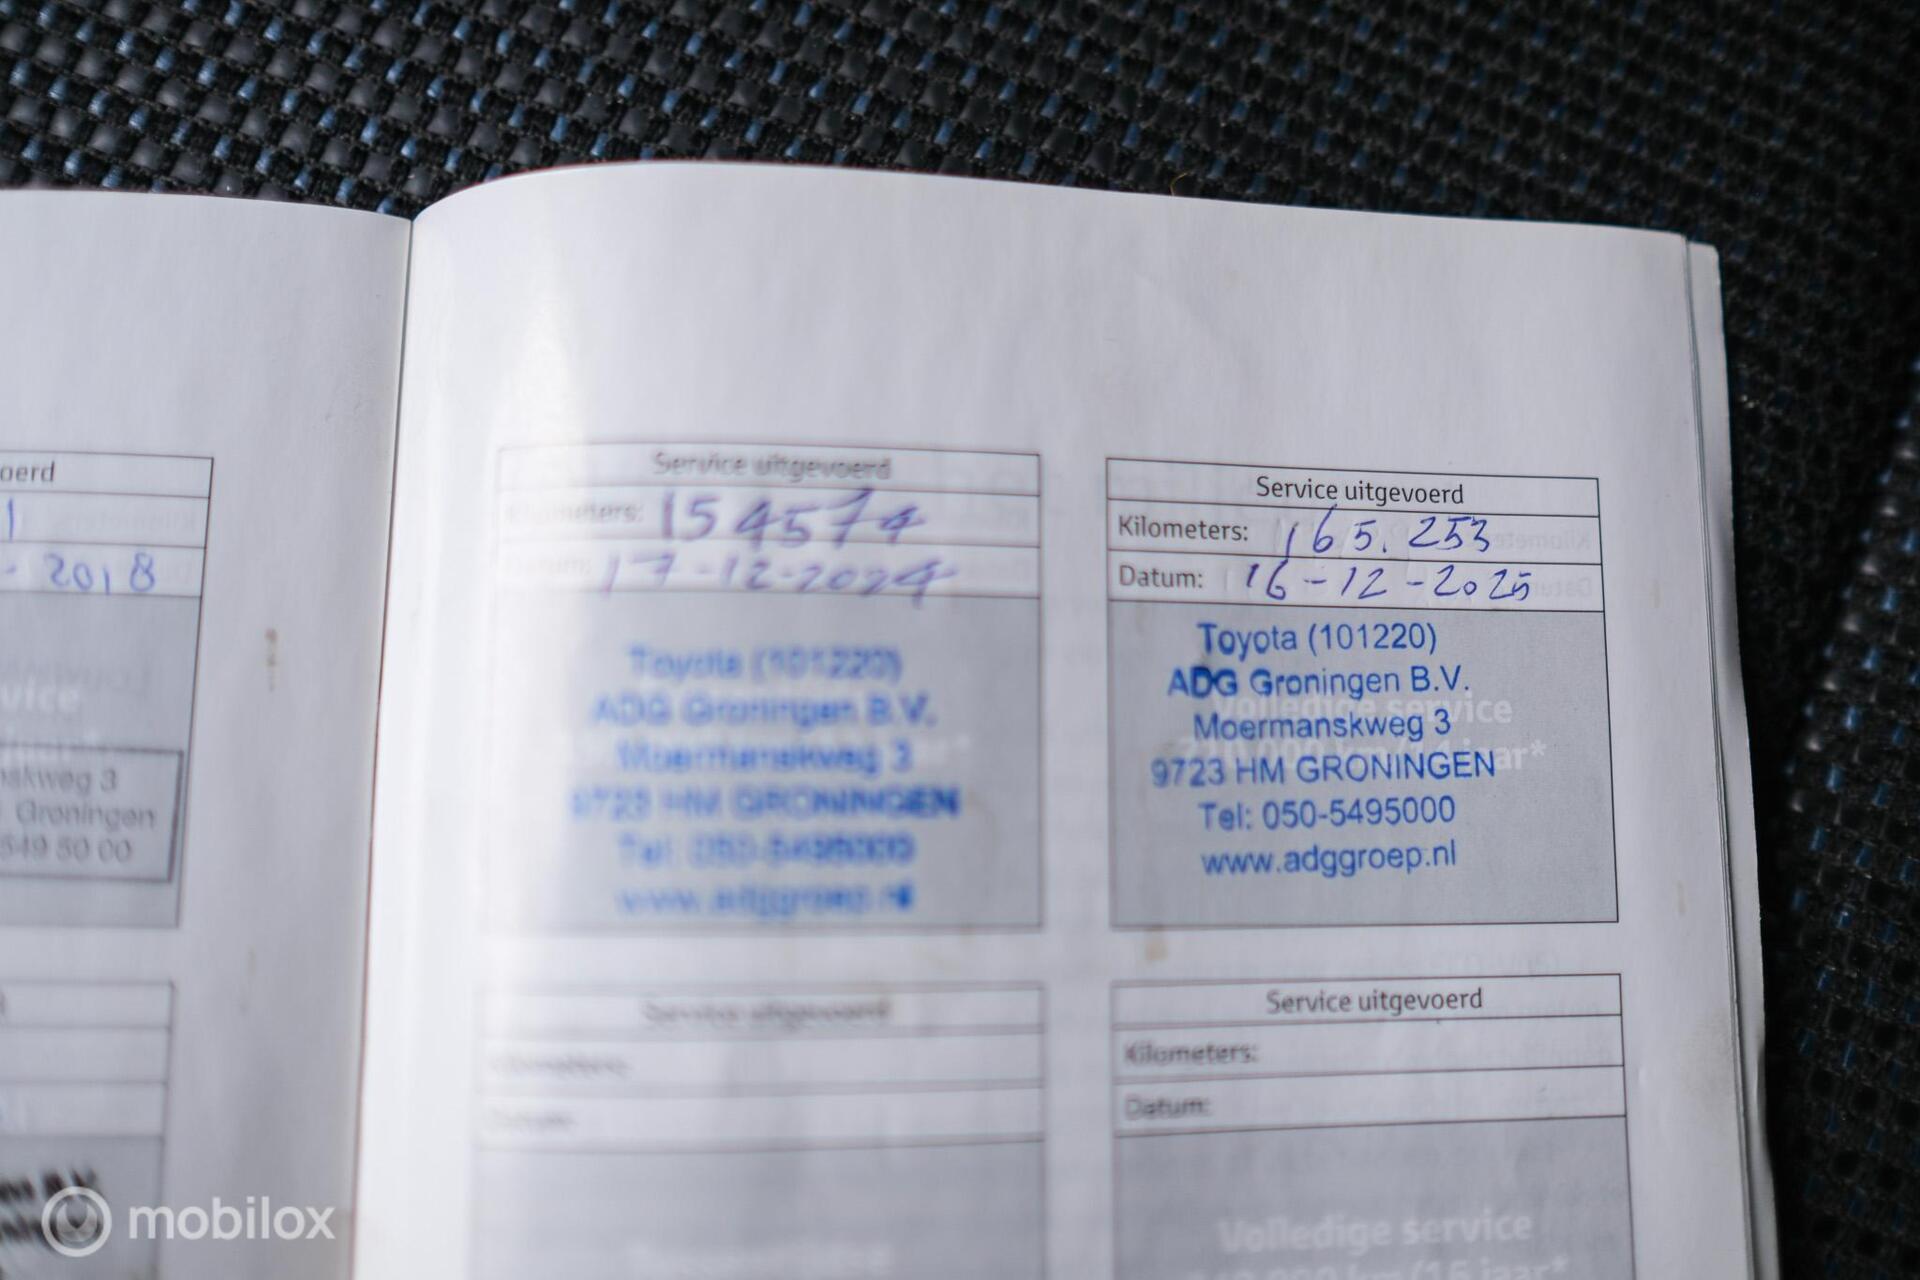 oerd
- 2018
vice
nskweg 3
Groningen
549 50 00
Service uitgevoerd
Kilometers: 154574
17-12-2024
Toyota (101220)
ADG Groningen B.V.
Moermanskweg 3
9723 HM GRONINGEN
Tel: 050-5495000
www.adggroep.nl
Service uitgevoerd
Kilometers: 165.253
Datum: 16-12-2025
Toyota (101220)
ADG Groningen B.V.
Moermanskweg 3
9723 HM GRONINGEN
Tel: 050-5495000
www.adggroep.nl
Volledige service
jaar*
Service uitgevoerd
Kilometers:
Datum:
Service uitgevoerd
Kilometers:
Datum:
Volledige service
km/16 jaar*
mobilox